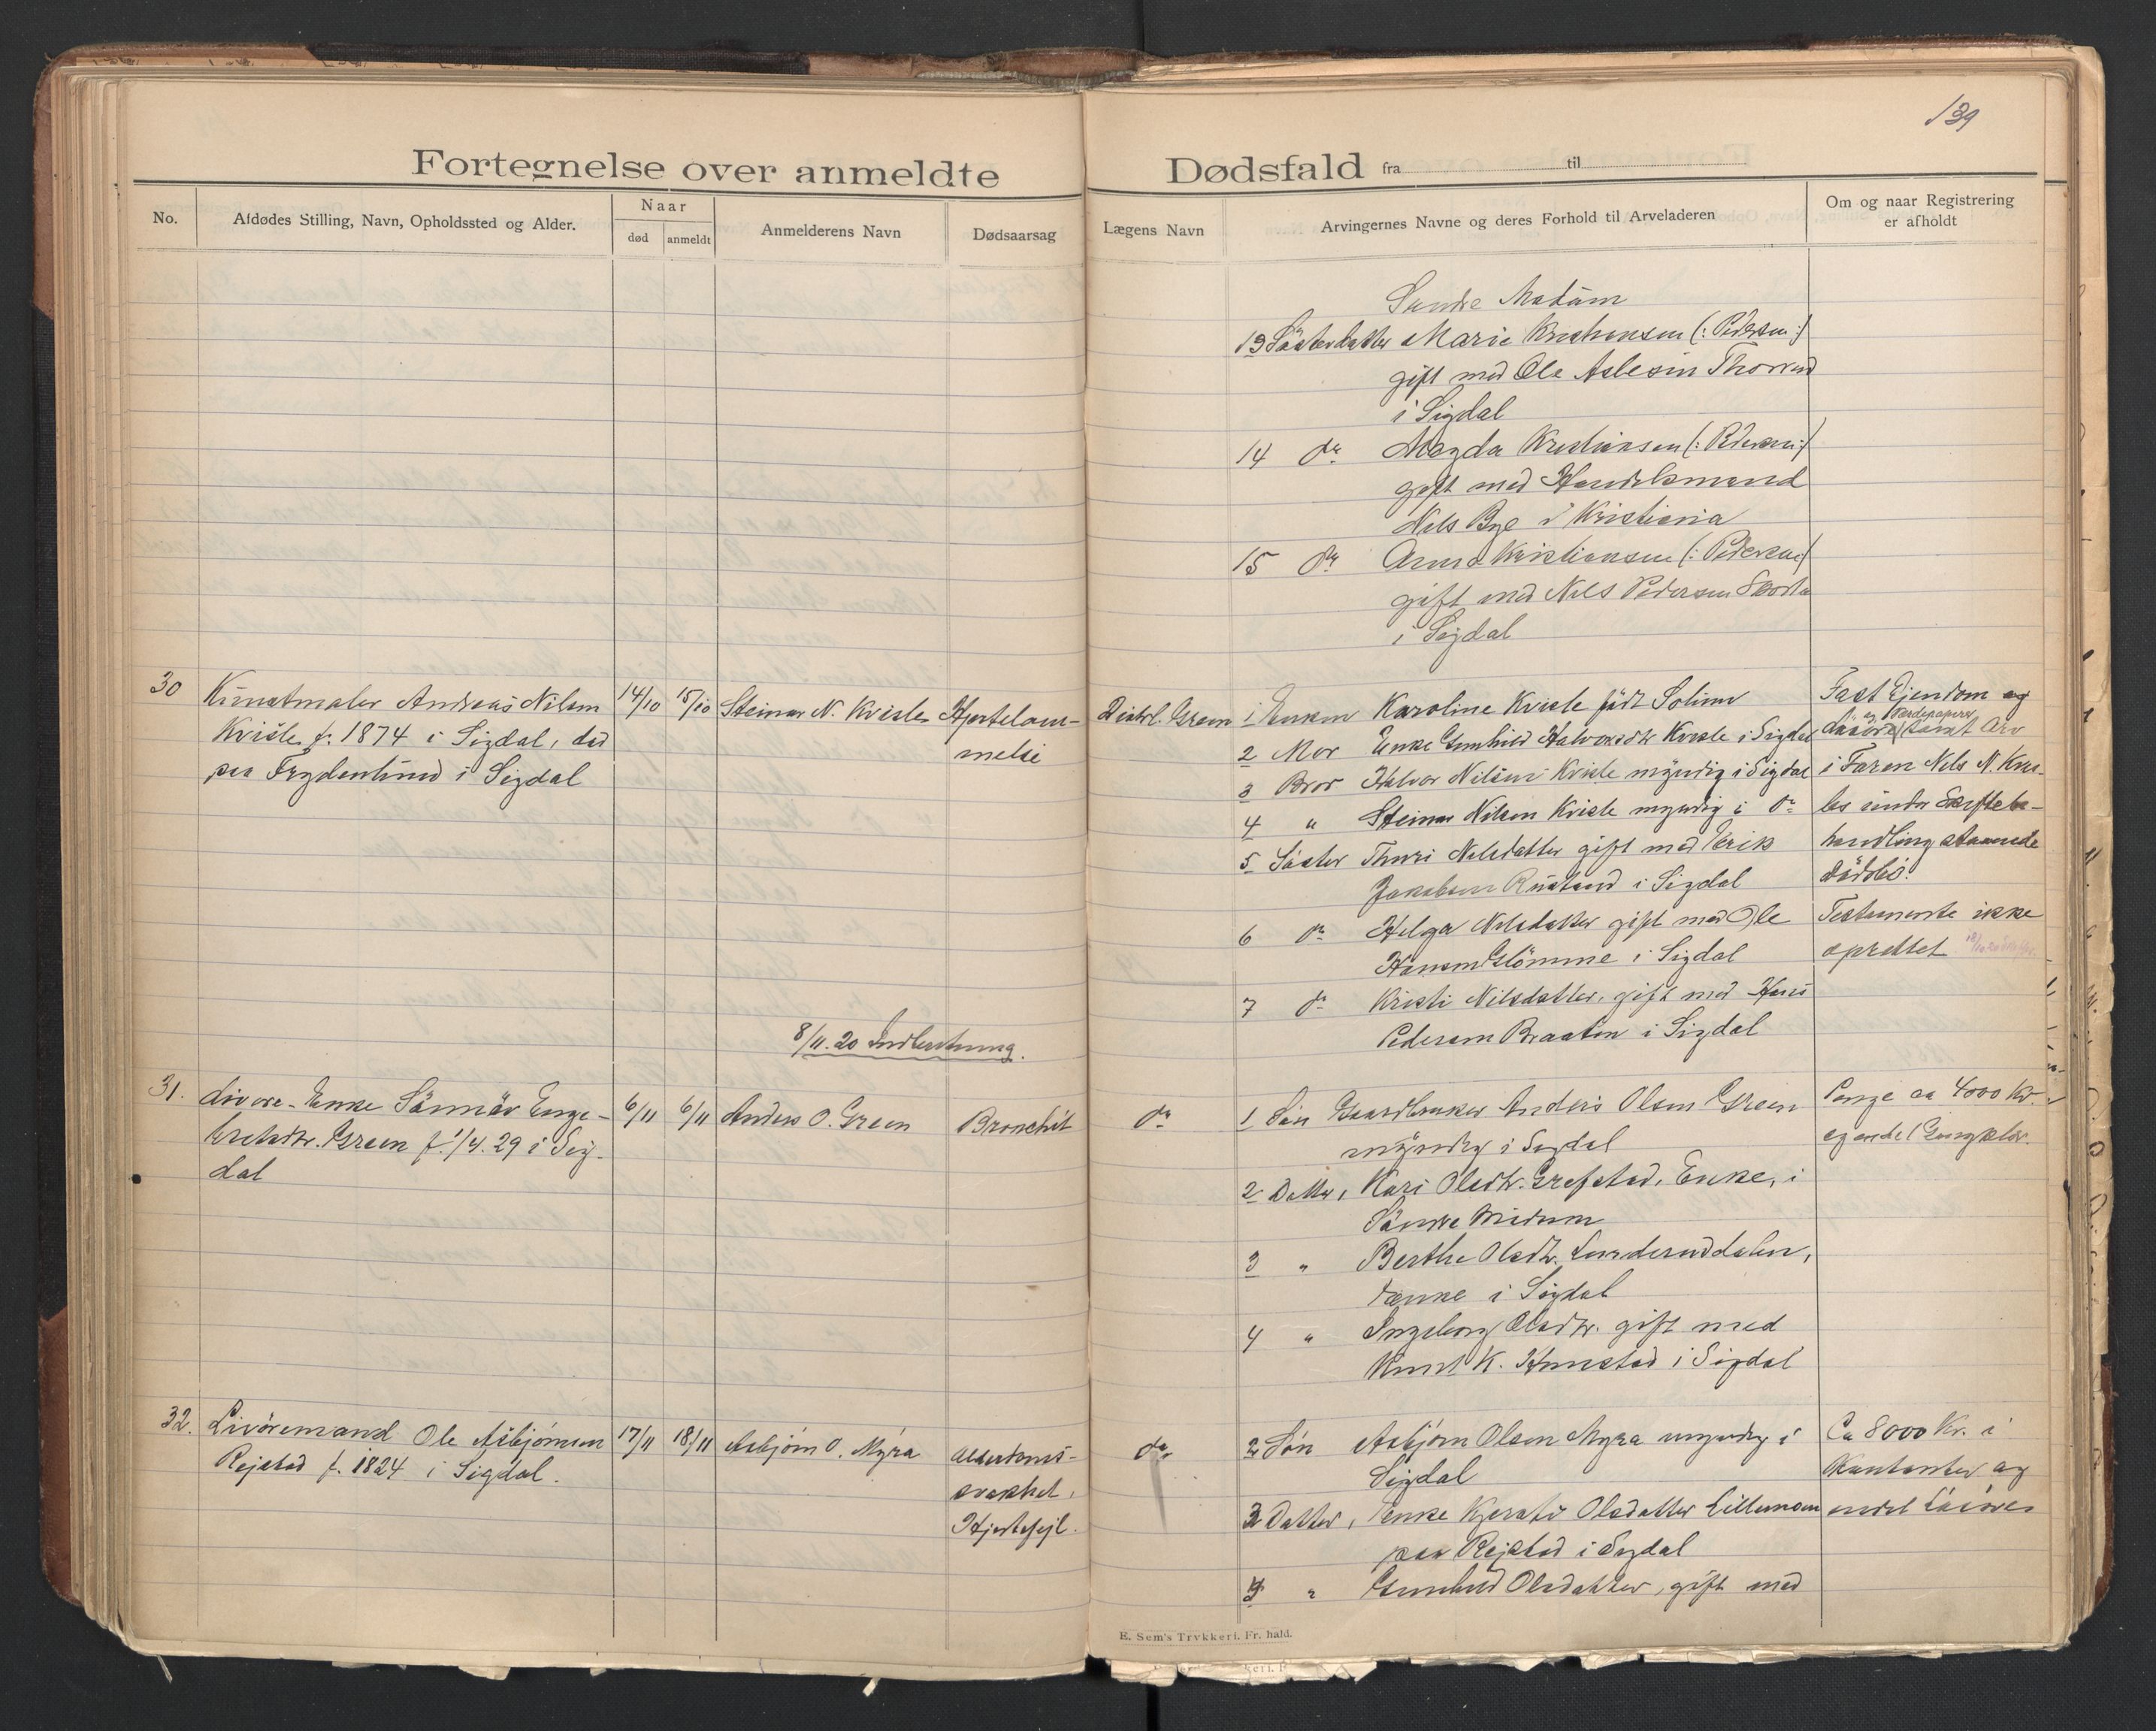 139
Fortegnelse over anmeldte Dødsfald fra til
No.
Afdødes Stilling, Navn, Opholdssted og Alder.
Naar
død
anmeldt
Anmelderens Navn
Dødsaarsag
Lægens Navn
Arvingernes Navne og deres Forhold til Arveladeren
Om og naar Registrering
er afholdt
Søndre Modum
13 Søsterdatter Marie Kristiansen (: Pedersen :)
gift med Ole Aslesen
i Sigdal
14 do Magda Kristiansen (: Pedersen :)
gift med Handelsmand
Nels Bye i Kristiania
15 do Anna Kristiansen (: Pedersen :)
gift med Nils Pedersen
i Sigdal
30
Kunstmaler Andreas Nilsen
Kvisle f. 1874 i Sigdal, død
paa Frydenlund i Sigdal
14/10
15/10
Steinar N. Kvisle
Hjertelam-
melse
Distrl. Green
1 Enken Karoline Kvisle født Solum
2 Mor Enke Gunhild Halvorsdtr Kvisle i Sigdal
3 Bror Halvor Nilsen Kvisle myndig i Sigdal
4 " Steinar Nilsen Kvisle myndig i do
5 Søster Thuri Nilsdatter gift med Erik
Jakobsen Rustand i Sigdal
6 do Helga Nilsdatter gift med Ole
Hansen Glömme i Sigdal
7 do Kristi Nilsdatter, gift med Hans
Pedersen Braaten i Sigdal
Fast Ejendom og
og Værdepapirer
Løsøre samt Arv
i Faren Nels N. Kvis-
les under Skiftebe-
handling staaende
Dødsbo.
Testamente ikke
oprettet
8/11.20 Indberetning.
31.
Livøre-Enke Sønnøv Enge-
bretsdtr. Green f. 1/4.29 i Sig-
dal
6/11
6/11
Anders O. Green
Bronchit
do
1 Søn Gaardbruker Anders Olsen Green
myndig i Sigdal
2 Datter, Kari Olsdtr. Grefstad, Enke, i
Søndre Modum
3 " Berthe Olsdtr. Lunderuddalen,
Enke i Sigdal
4 " Ingeborg Olsdtr. gift med
Knut K. Hunstad i Sigdal
Penge ca 4000 Kr.
og endel Gangklær.
32.
Livøremand Ole Asbjørnsen
Rejstad f. 1824 i Sigdal.
17/11
18/11
Asbjørn O. Myra
Alderdoms-
svakhet,
Hjertefejl.
do
2 Søn Asbjørn Olsen Myra myndig i
Sigdal
3 Datter, Enke Kjersti Olsdatter Lillemoen
paa Rejstad i Sigdal
4 " Gunhild Olsdatter, gift med
Ca 8000 Kr. i
Kontanter og
endel Løsøre
E. Sem's Trykkeri, Fr. hald.